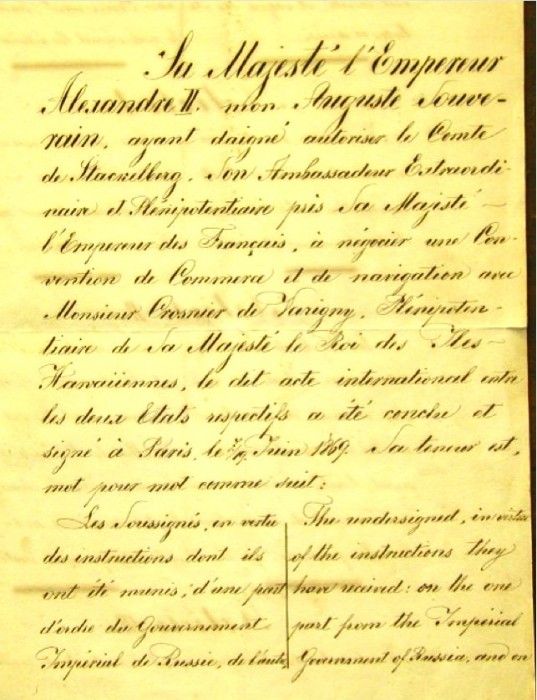 Sa Majesté l'Empereur
Alexandre II. mon Auguste Souve-
rain, ayant daigné autoriser le Comte
de Stackelberg, Son Ambassadeur Extraordi-
naire et Plénipotentiaire près Sa Majesté
l'Empereur des Français, à négocier une Con-
vention de Commerce et de navigation avec
Monsieur Crosnier de Varigny, Plénipoten-
tiaire de Sa Majesté le Roi des Iles
Hawaiiennes, le dit acte international entre
les deux Etats respectifs a été conclu et
signé à Paris, le 7/19 Juin 1869. Sa teneur est,
mot pour mot comme suit:
Les Soussignés, en vertu
des instructions dont ils
ont été munis, d'une part
d'ordre du Gouvernement
Impérial de Russie, de l'autre
The undersigned, in virtue
of the instructions they
have received: on the one
part from the Imperial
Government of Russia, and on